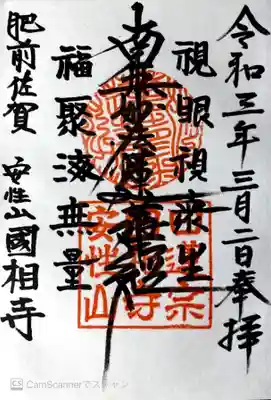 令和三年三月二日奉拝
視眼視衆生
南無妙法蓮華経
福聚海無量
肥前佐賀 安性山國相寺
安性山
CS CamScannerでスキャン